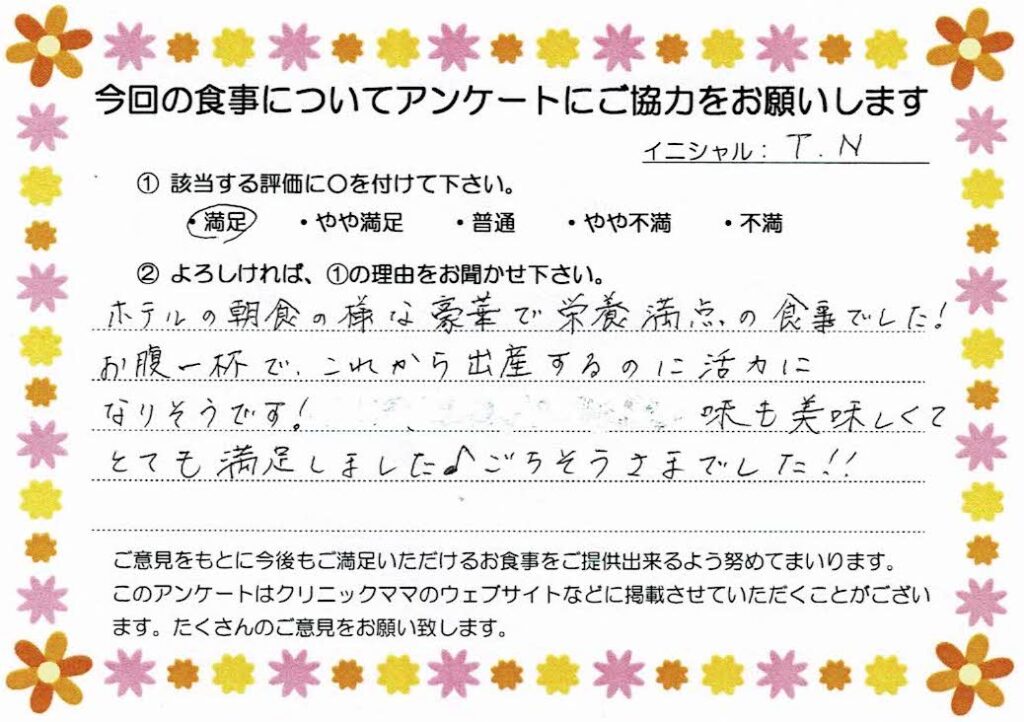 今回の食事についてアンケートにご協力をお願いします
イニシャル: T.N
① 該当する評価に〇を付けて下さい。
・満足 ・やや満足 ・普通 ・やや不満 ・不満
② よろしければ、①の理由をお聞かせ下さい。
ホテルの朝食の様な豪華で栄養満点の食事でした!
お腹一杯で、これから出産するのに活力に
なりそうです! 味も美味しくて
とても満足しました♪ごちそうさまでした!!
ご意見をもとに今後もご満足いただけるお食事をご提供出来るよう努めてまいります。
このアンケートはクリニックママのウェブサイトなどに掲載させていただくことがござい
ます。たくさんのご意見をお願い致します。